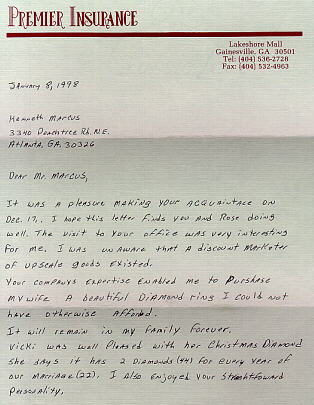 PREMIER INSURANCE
Lakeshore Mall
Gainesville, GA 30501
Tel: (404) 536-2728
Fax: (404) 532-4963
January 8, 1998
Kenneth Marcus
3340 Peachtree Rd. N.E.
Atlanta, GA. 30326
Dear Mr. Marcus,
It was a pleasure making your acquaintace on
Dec. 17,. I hope this letter finds you and Rose doing
well. The visit to your office was very interesting
for me. I was unaware that a discount marketer
of upscale goods existed.
Your companys expertise enabled me to purshase
my wife a beautiful diamond ring I could not
have otherwise afforded.
It will remain in my family forever.
Vicki was well pleased with her Christmas Diamond
She says it has 2 diamonds (44) for every year of
our marriage (22). I also enjoyed your
personality,